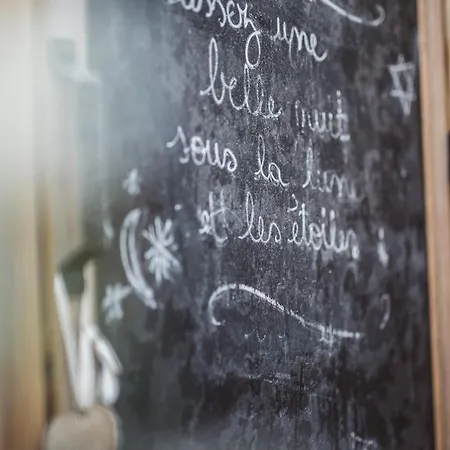 Passez une
belle nuit
sous la lune
et les étoiles